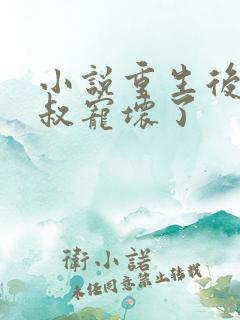 小說重生後
叔寵壞了
衛小諾
未任同意禁止轉載